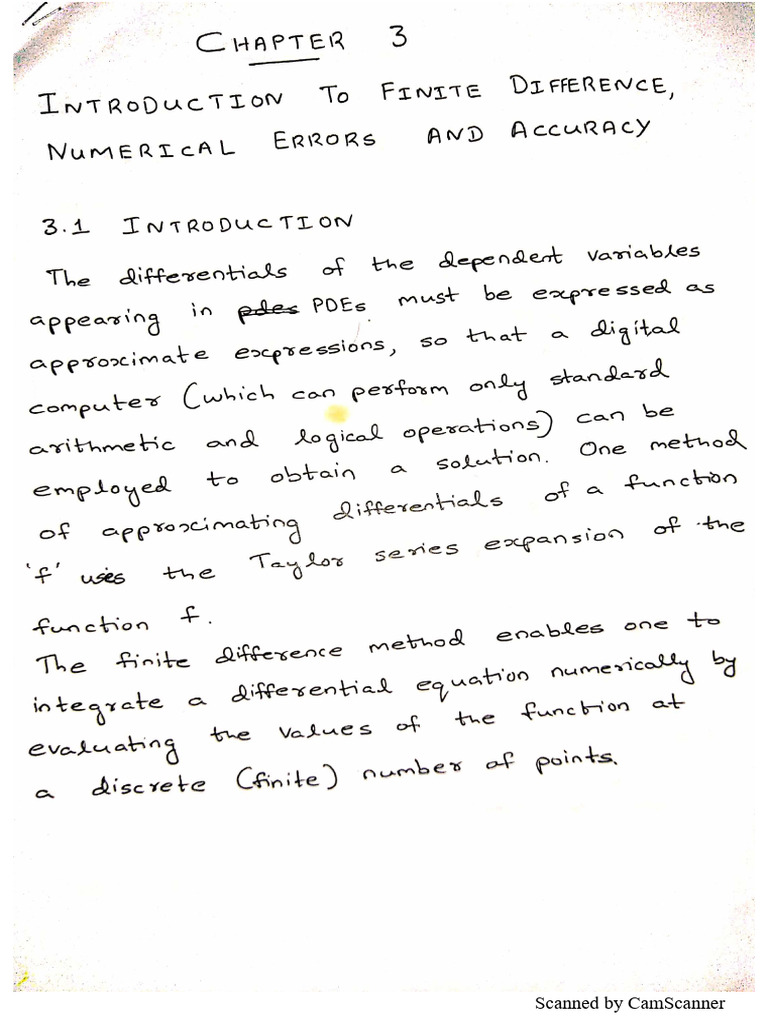 CHAPTER 3
INTRODUCTION TO FINITE DIFFERENCE,
NUMERICAL ERRORS AND ACCURACY
3.1 INTRODUCTION
The differentials of the dependent variables
appearing in pdes PDEs must be expressed as
approximate expressions, so that a digital
computer (which can perform only standard
arithmetic and logical operations) can be
employed to obtain a solution. One method
of approximating differentials of a function
'f' uses the Taylor series expansion of the
function f.
The finite difference method enables one to
integrate a differential equation numerically by
evaluating the values of the function at
a discrete (finite) number of points.
Scanned by CamScanner